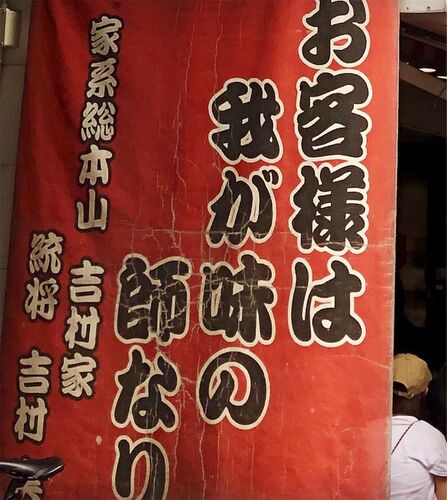 お客様は
我が味の
師なり
家系総本山 吉村家
統将 吉村